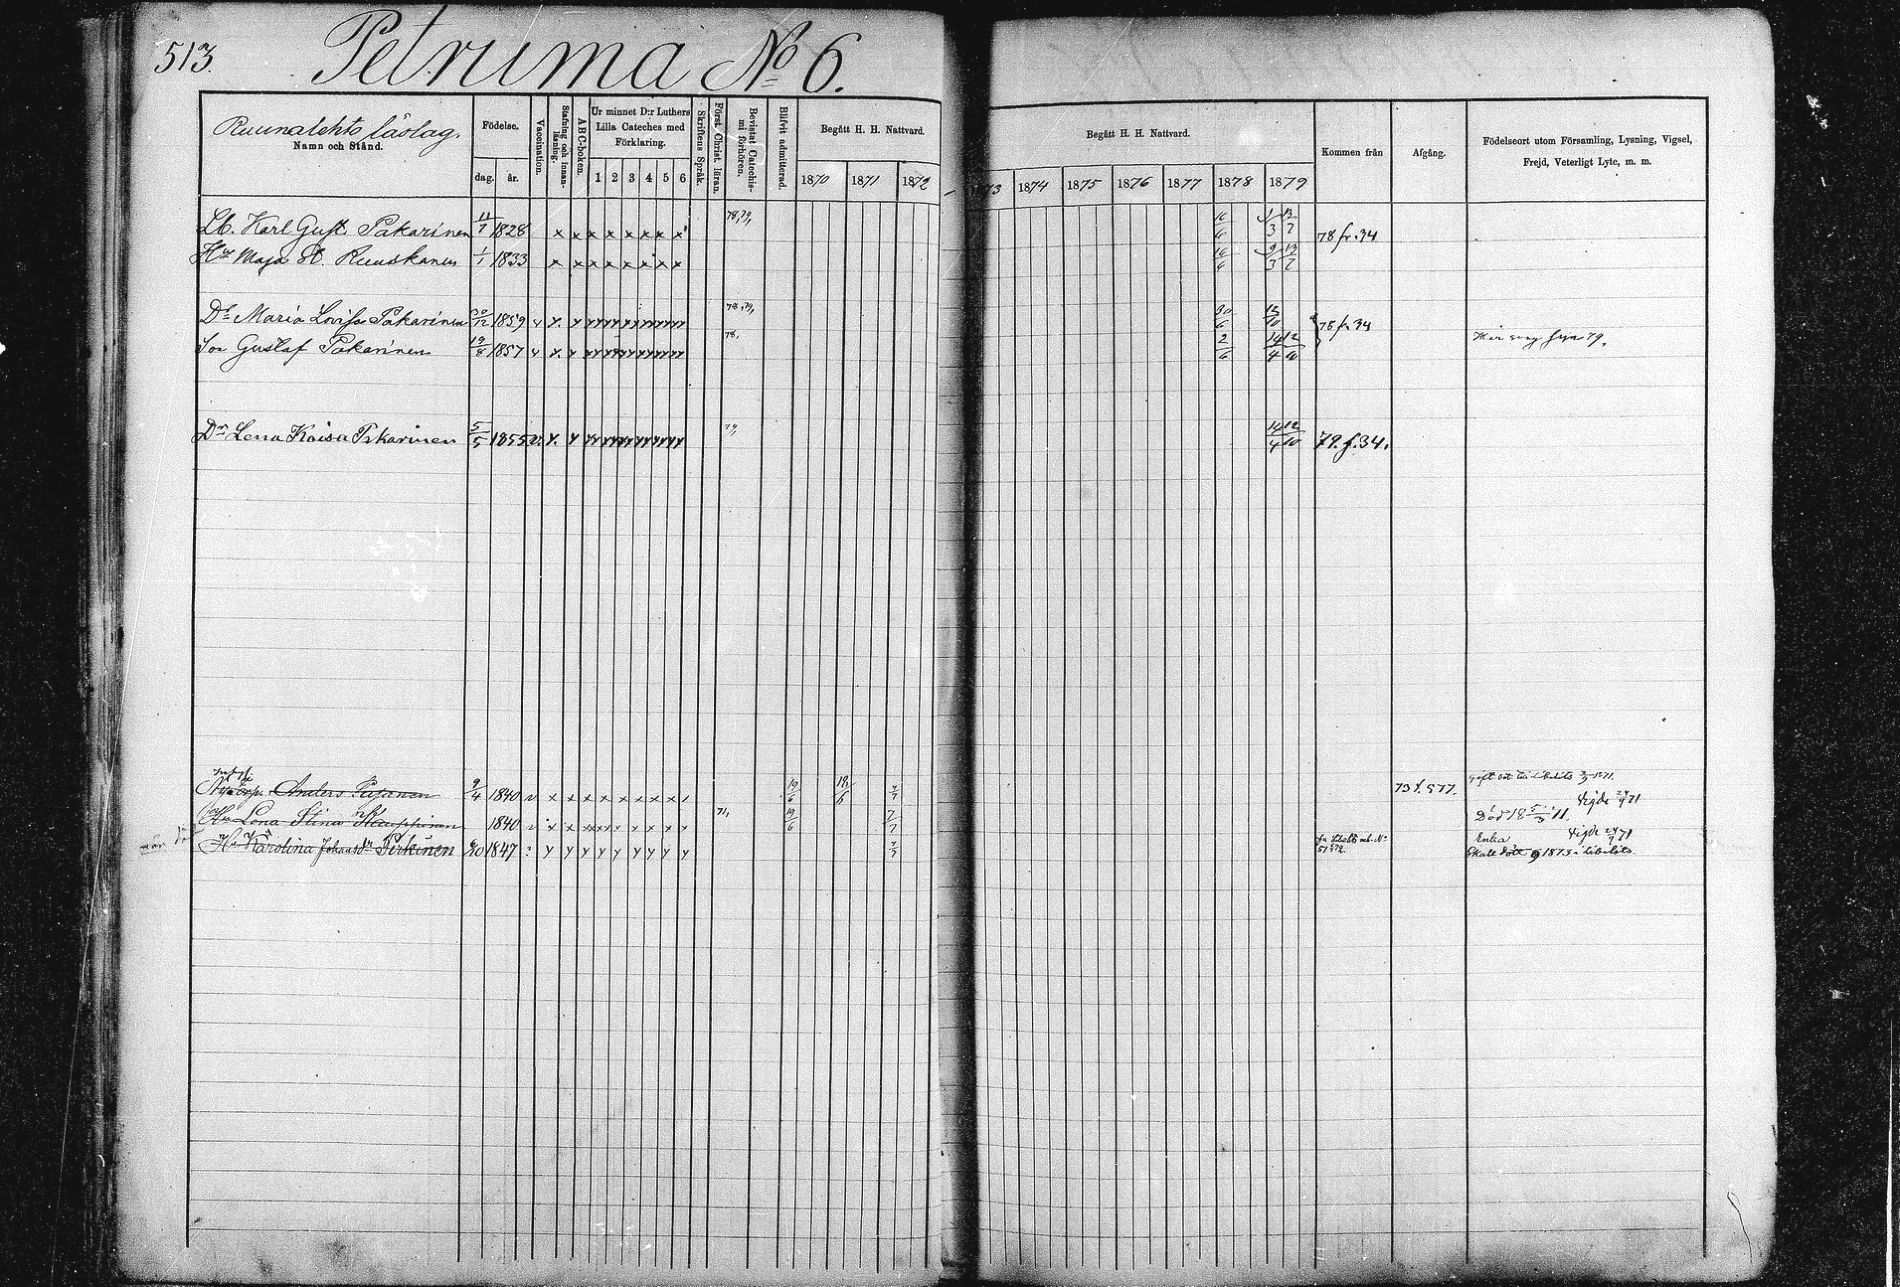 513.
Petruma No 6.
Ruunalehto läslag.
Namn och Stånd.
Födelse.
dag. år.
Vaccination.
Stafning och innanläsning.
ABC-boken.
Ur minnet D:r Luthers
Lilla Cateches med
Förklaring.
1 2 3 4 5 6
Skriftens Språk.
Först. Christ. läran.
Bevistat Catechismi förhören.
Blifvit admitterad.
Begått H. H. Nattvard.
1870 1871 1872
Begått H. H. Nattvard.
73 1874 1875 1876 1877 1878 1879
Kommen från
Afgång.
Födelseort utom Församling, Lysning, Vigsel,
Frejd, Veterligt Lyte, m. m.
Lb. Karl Gust. Pakarinen 11/7 1828 x x x x x x x x 78,79, 16/6 78 fr. 34
Hu Maja St. Ruuskanen 1/1 1833 x x x x x x x x 16/6
Dr Maria Lovisa Pakarinen 30/12 1859 v 78,79, 30/6 12/10 78 fr. 34
Son Gustaf Pakarinen 19/8 1857 v 78, 2/6 14/4 12/10 79.
Dr Lena Kaisa Pakarinen 5/5 1855 v. 79, 14/4 12/10 79. f. 34.
Anders 9/4 1840 v x x x x x x x 19/6 18/6 7/7 73 f. 577.
Hu Lena Stina 1840 v 71, 19/6 7/7 Död 18 71.
Hu Karolina Johansdr Pirkinen 1847 y y y y y y y y 7/7 Enka
1873 i Libelits